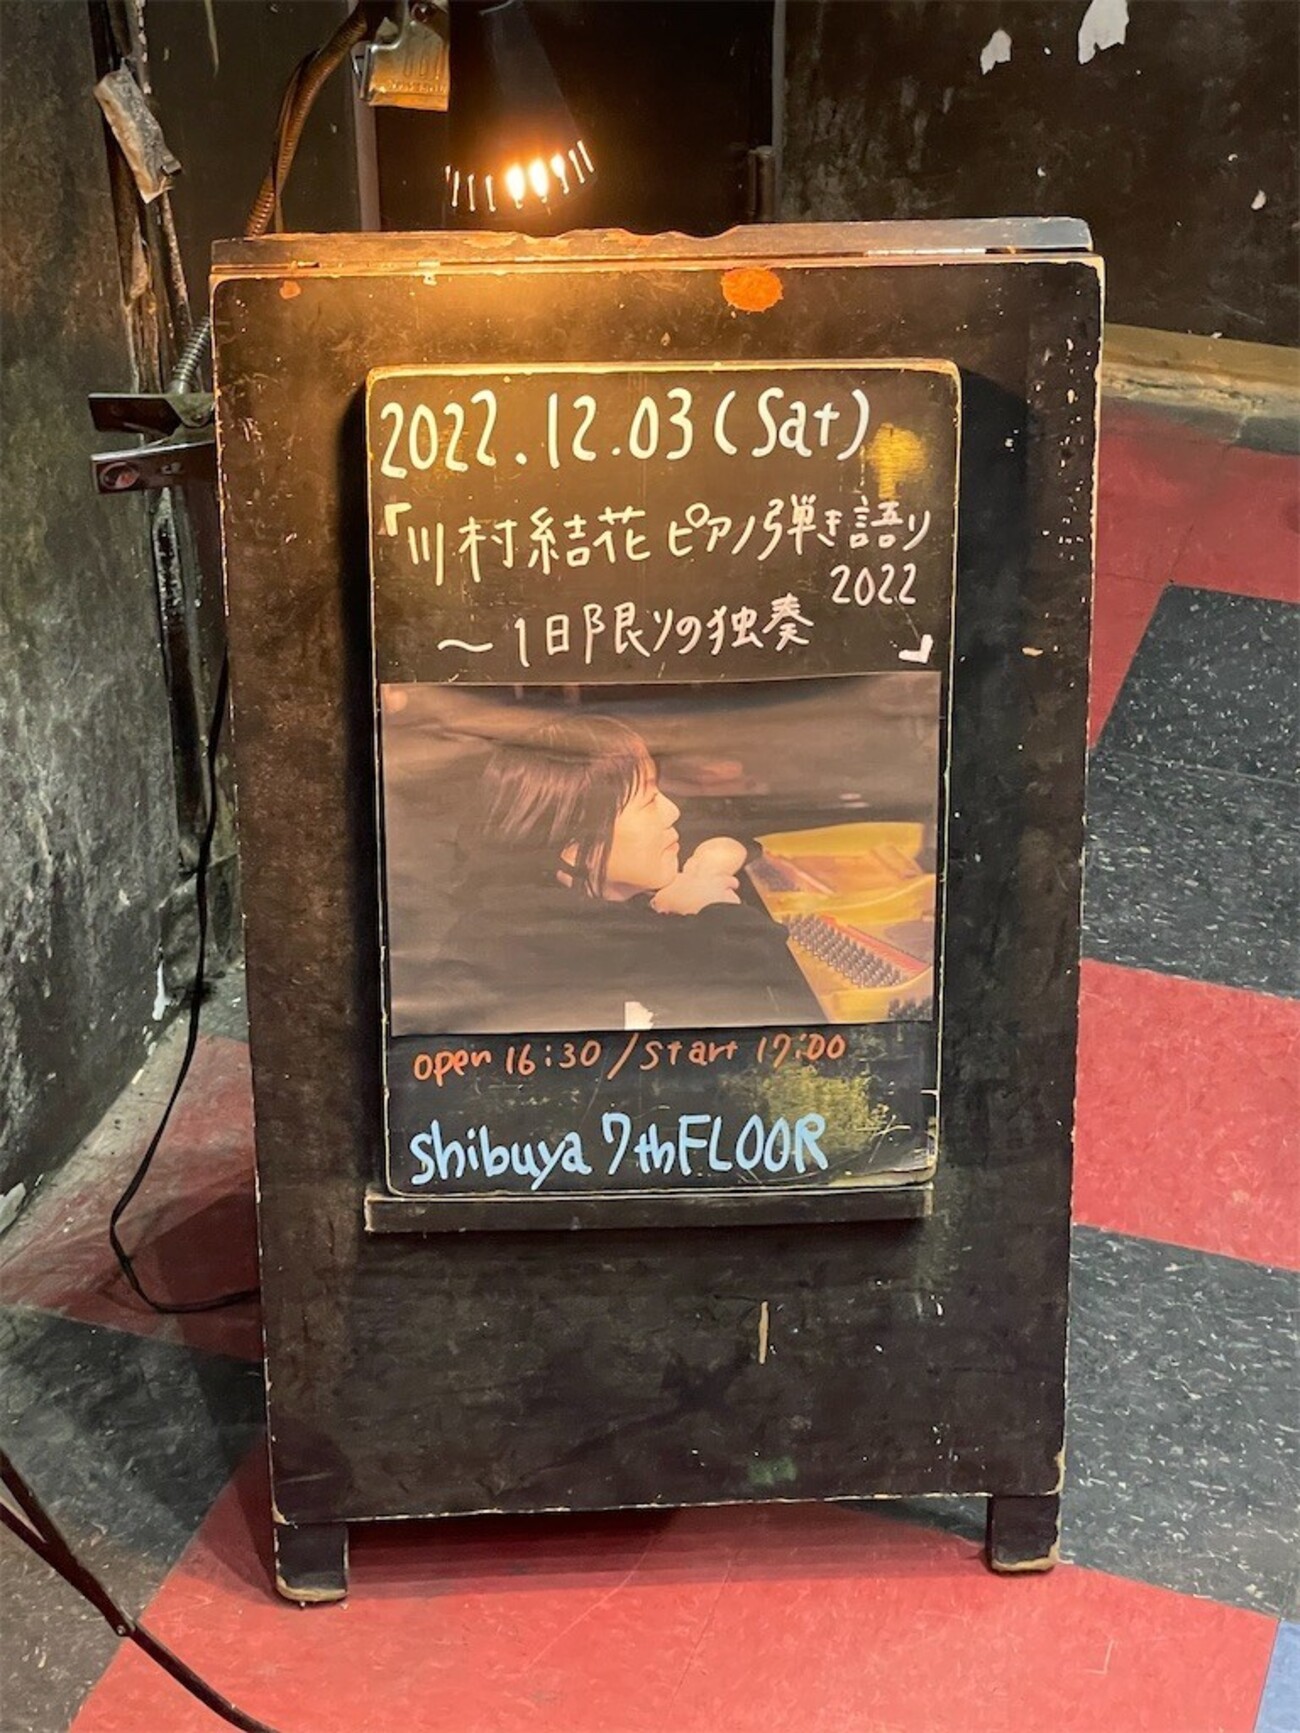 2022.12.03(Sat)
『川村結花 ピアノ弾き語り
2022
～1日限りの独奏』
open 16:30 / start 17:00
shibuya 7thFLOOR